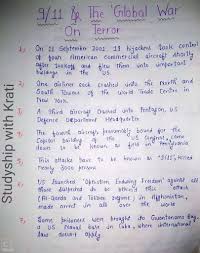 9/11 & The Global War
On Terror
1) On 11 September 2001 19 hijackers took control
of four American commercial aircraft shortly
after takeoff and flew them into important
buildings in the US.
2) One airliner each crashed into the North and
South Towers of the World Trade Centre in
New York.
3) A third aircraft crashed into Pentagon, US
Defence Department Headquarter
4) The fourth aircraft presumably bound for the
Capitol building of the US Congress, came
down in a field in Pennsylvania
5) This attacks have to be known as "9/11", killed
nearly 3000 persons
6) US launched 'Operation Enduring Freedom' against all
those suspected to be behind this attack
(Al-Qaeda and Taliban regime) in Afghanistan,
made arrest in all over the world
7) Some prisoners were brought to Guantanamo Bay,
a US Naval base in Cuba, where international
law doesn't apply.
Studyship with Krati